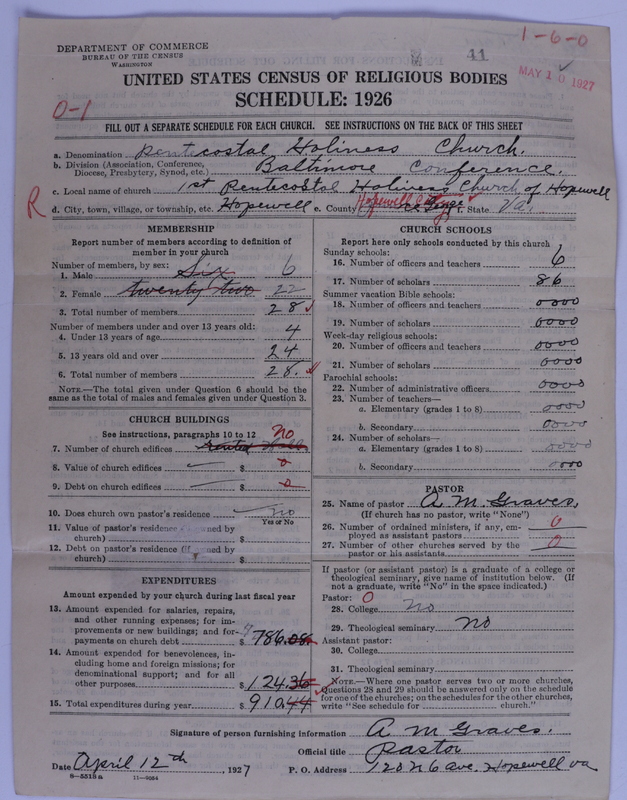 1-6-0
DEPARTMENT OF COMMERCE
BUREAU OF THE CENSUS
WASHINGTON
11
MAY 10 1927
UNITED STATES CENSUS OF RELIGIOUS BODIES
SCHEDULE: 1926
0-1
FILL OUT A SEPARATE SCHEDULE FOR EACH CHURCH. SEE INSTRUCTIONS ON THE BACK OF THIS SHEET
a. Denomination Pentecostal Holiness Church.
b. Division (Association, Conference, Diocese, Presbytery, Synod, etc.) Baltimore Conference.
c. Local name of church 1st Pentecostal Holiness Church of Hopewell
R d. City, town, village, or township, etc. Hopewell e. County Hopewell City f. State Va.
MEMBERSHIP
Report number of members according to definition of
member in your church
Number of members, by sex:
1. Male six 6
2. Female twenty two 22
3. Total number of members 28
Number of members under and over 13 years old:
4. Under 13 years of age 4
5. 13 years old and over 24
6. Total number of members 28.
NOTE.—The total given under Question 6 should be the
same as the total of males and females given under Question 3.
CHURCH BUILDINGS
See instructions, paragraphs 10 to 12 no
7. Number of church edifices rented
8. Value of church edifices $ 0
9. Debt on church edifices $ 0
10. Does church own pastor's residence no
Yes or No
11. Value of pastor's residence (if owned by
church) $
12. Debt on pastor's residence (if owned by
church) $
EXPENDITURES
Amount expended by your church during last fiscal year
13. Amount expended for salaries, repairs,
and other running expenses; for im-
provements or new buildings; and for
payments on church debt $ 786.08
14. Amount expended for benevolences, in-
cluding home and foreign missions; for
denominational support; and for all
other purposes $ 124.36
15. Total expenditures during year $ 910.44
CHURCH SCHOOLS
Report here only schools conducted by this church
Sunday schools:
16. Number of officers and teachers 6
17. Number of scholars 86
Summer vacation Bible schools:
18. Number of officers and teachers 0000
19. Number of scholars 0000
Week-day religious schools:
20. Number of officers and teachers 0000
21. Number of scholars 0000
Parochial schools:
22. Number of administrative officers 0000
23. Number of teachers—
a. Elementary (grades 1 to 8) 0000
b. Secondary 0000
24. Number of scholars—
a. Elementary (grades 1 to 8) 0000
b. Secondary 0000
PASTOR
25. Name of pastor A. M. Graves,
(If church has no pastor, write "None")
26. Number of ordained ministers, if any, em-
ployed as assistant pastors 0
27. Number of other churches served by the
pastor or his assistants 0
If pastor (or assistant pastor) is a graduate of a college or
theological seminary, give name of institution below. (If
not a graduate, write "No" in the space indicated.)
Pastor: 0
28. College no
29. Theological seminary no
Assistant pastor:
30. College
31. Theological seminary
NOTE.—Where one pastor serves two or more churches,
Questions 28 and 29 should be answered only on the schedule
for one of the churches; on the schedules for the other churches,
write "See schedule for church."
Signature of person furnishing information A. M Graves.
Official title Pastor
Date April 12th, 1927 P. O. Address 120 N 6 ave. Hopewell va
8—5518a 11—9084